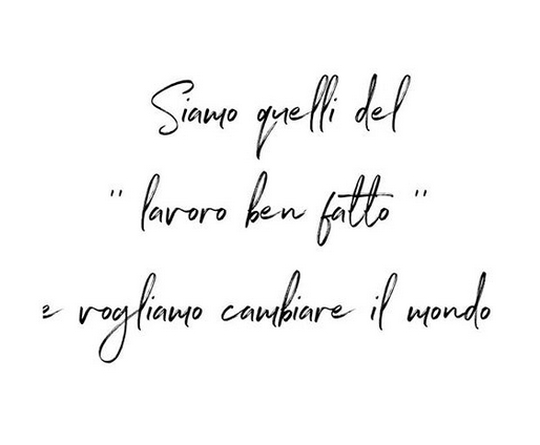 Siamo quelli del
" lavoro ben fatto "
e vogliamo cambiare il mondo